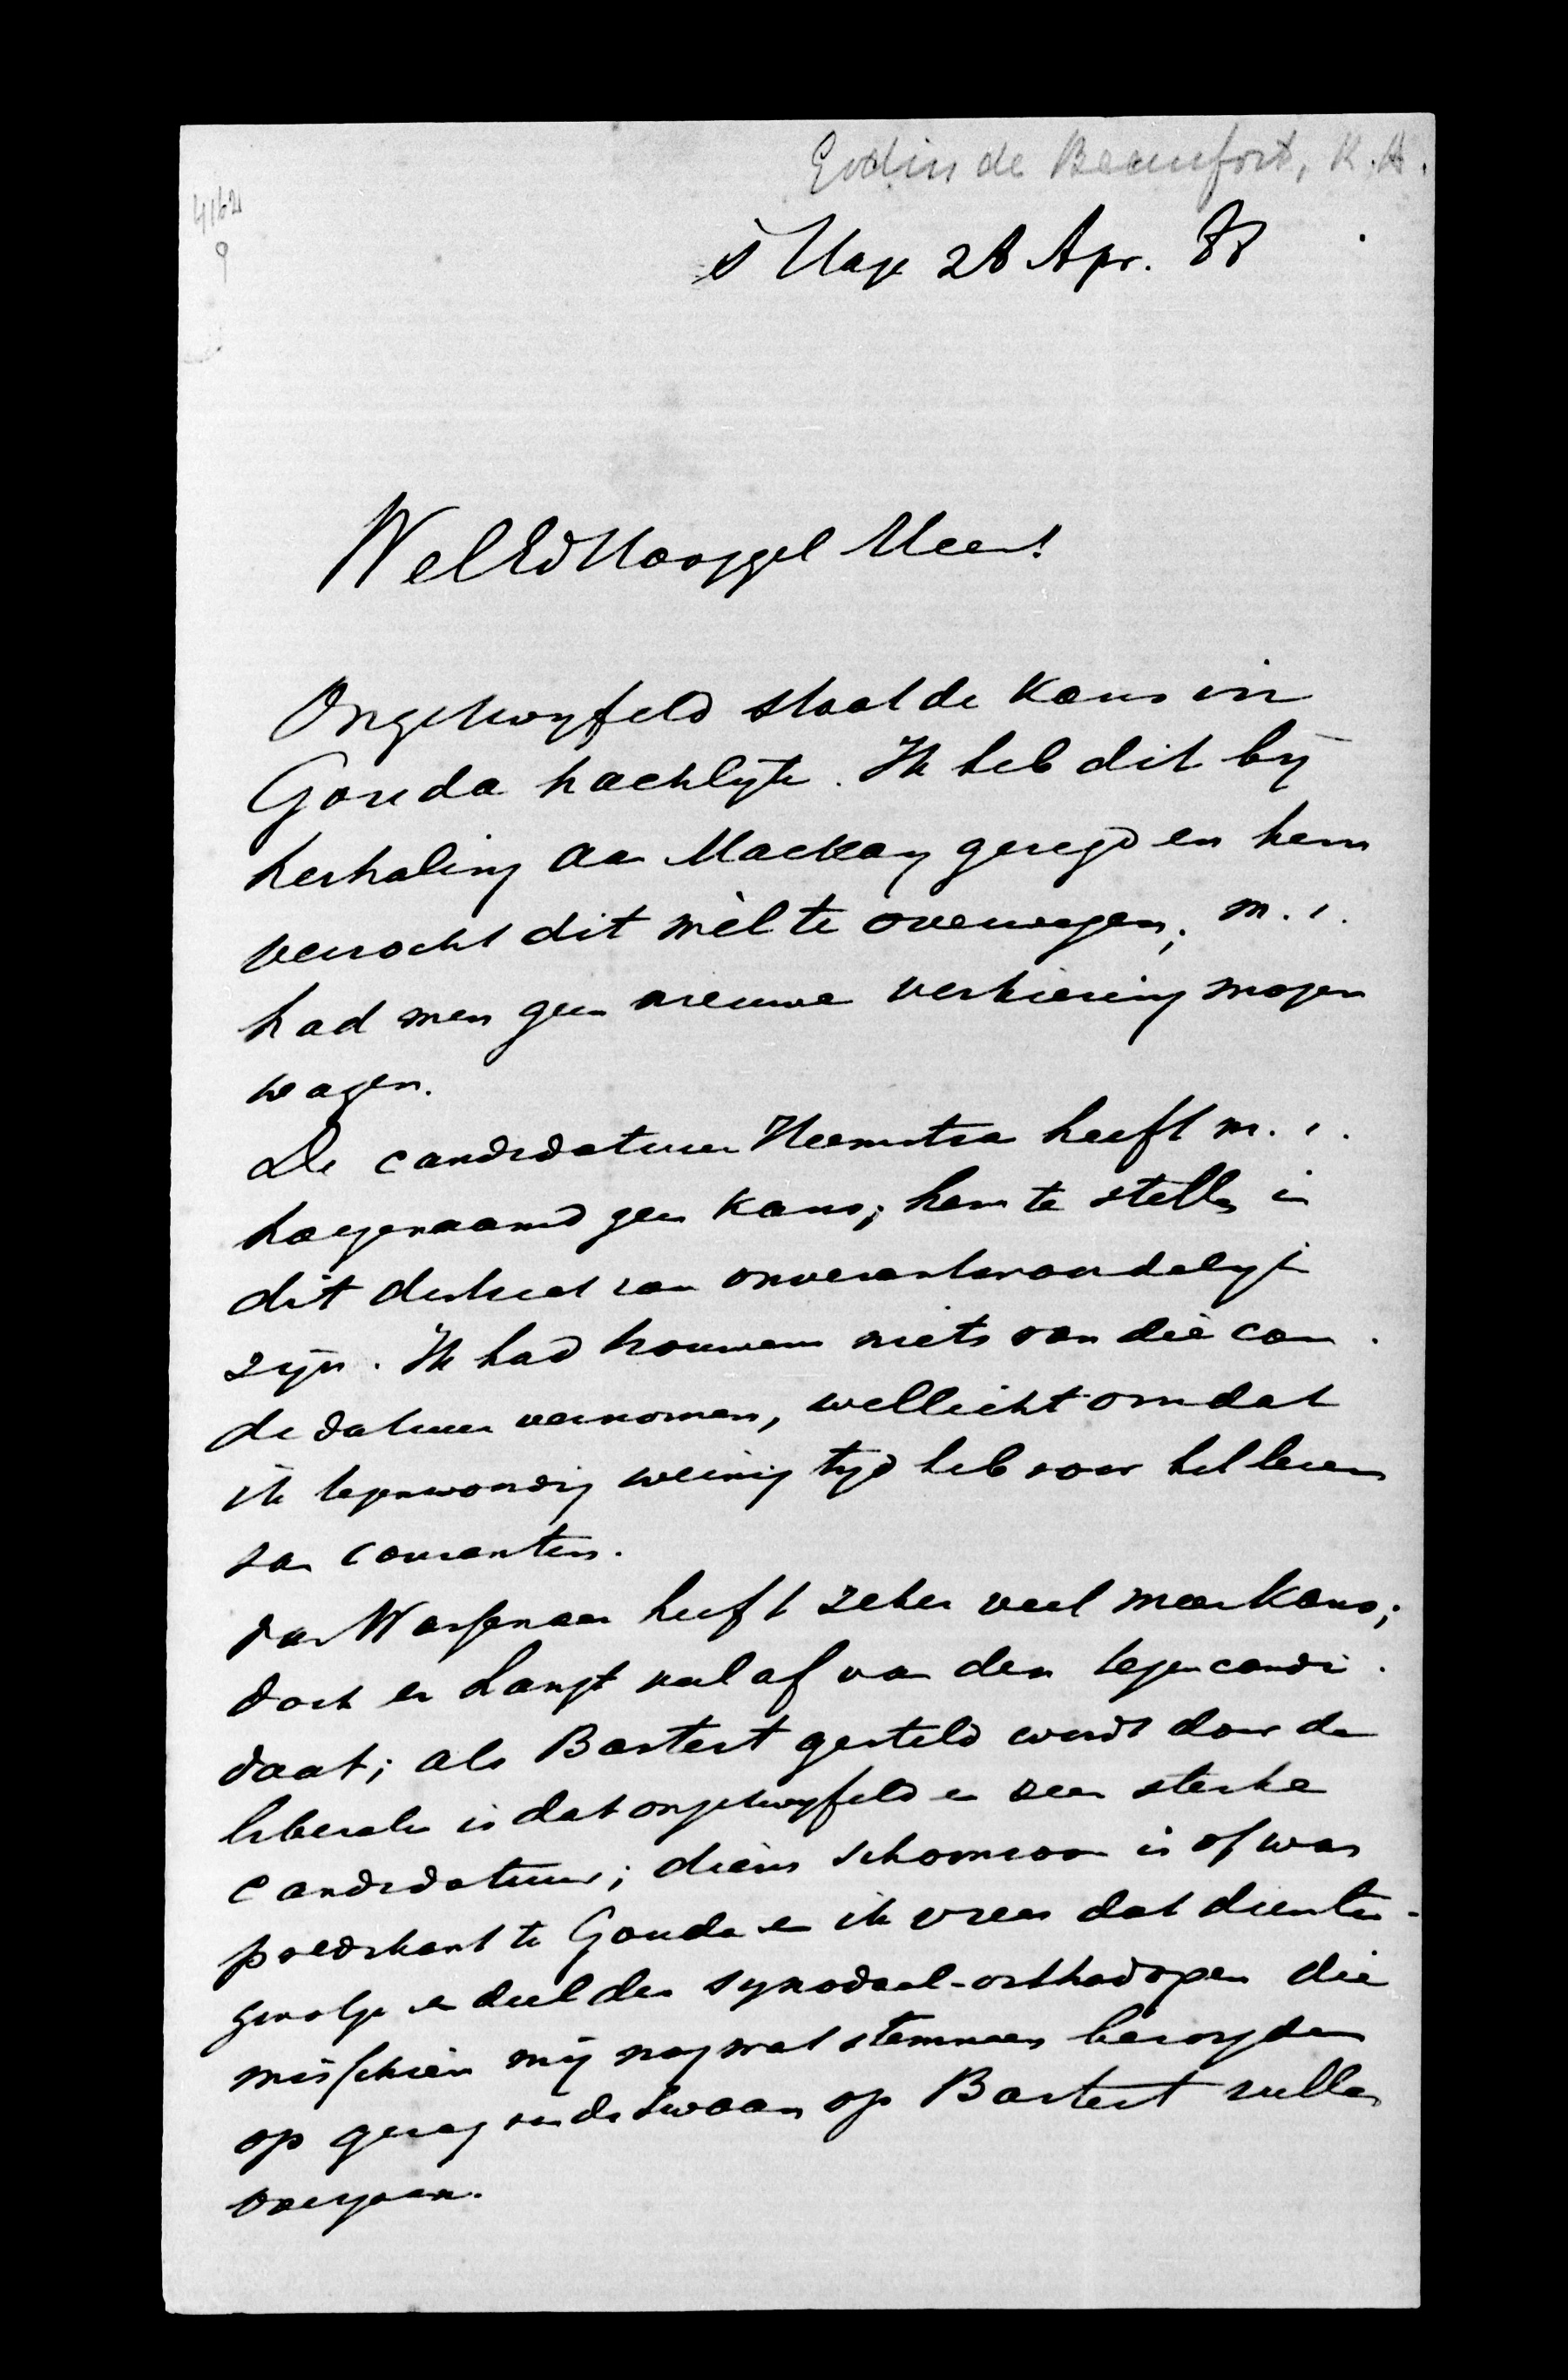 Godin de Beaufort, K.A.
4164
9
's Hage 28 Apr. 88
WelEdHooggel Heer!
Ongetwyfeld staat de kans in
Gouda hachlyk. Ik heb dit by
herhaling aan Mackay gezegd en hem
verzocht dit wèl te overwegen; m.i.
had men geen nieuwe verkiezing mogen
wagen.
De candidatuur Heemstra heeft m.i.
hoegenaamd geen kans; hem te stellen in
dit district zou onverantwoordelyk
zyn. Ik had trouwens niets van die can-
didatuur vernomen, wellicht omdat
ik tegenwoordig weinig tyd heb voor het lezen
van couranten.
van Wassenaer heeft zeker veel meer kans;
doch er hangt veel af van den tegencandi-
daat; als Bastert gesteld wordt door de
liberalen is dat ongetwyfeld een zeer sterke
candidatuur; diens schoonzoon is of was
predikant te Gouda en ik vrees dat dienten-
gevolge een deel der synodaal-orthodoxen die
misschien my nog wat stemmen bezorgden
op gezag van de Zwaan op Bastert zullen
overgaan.